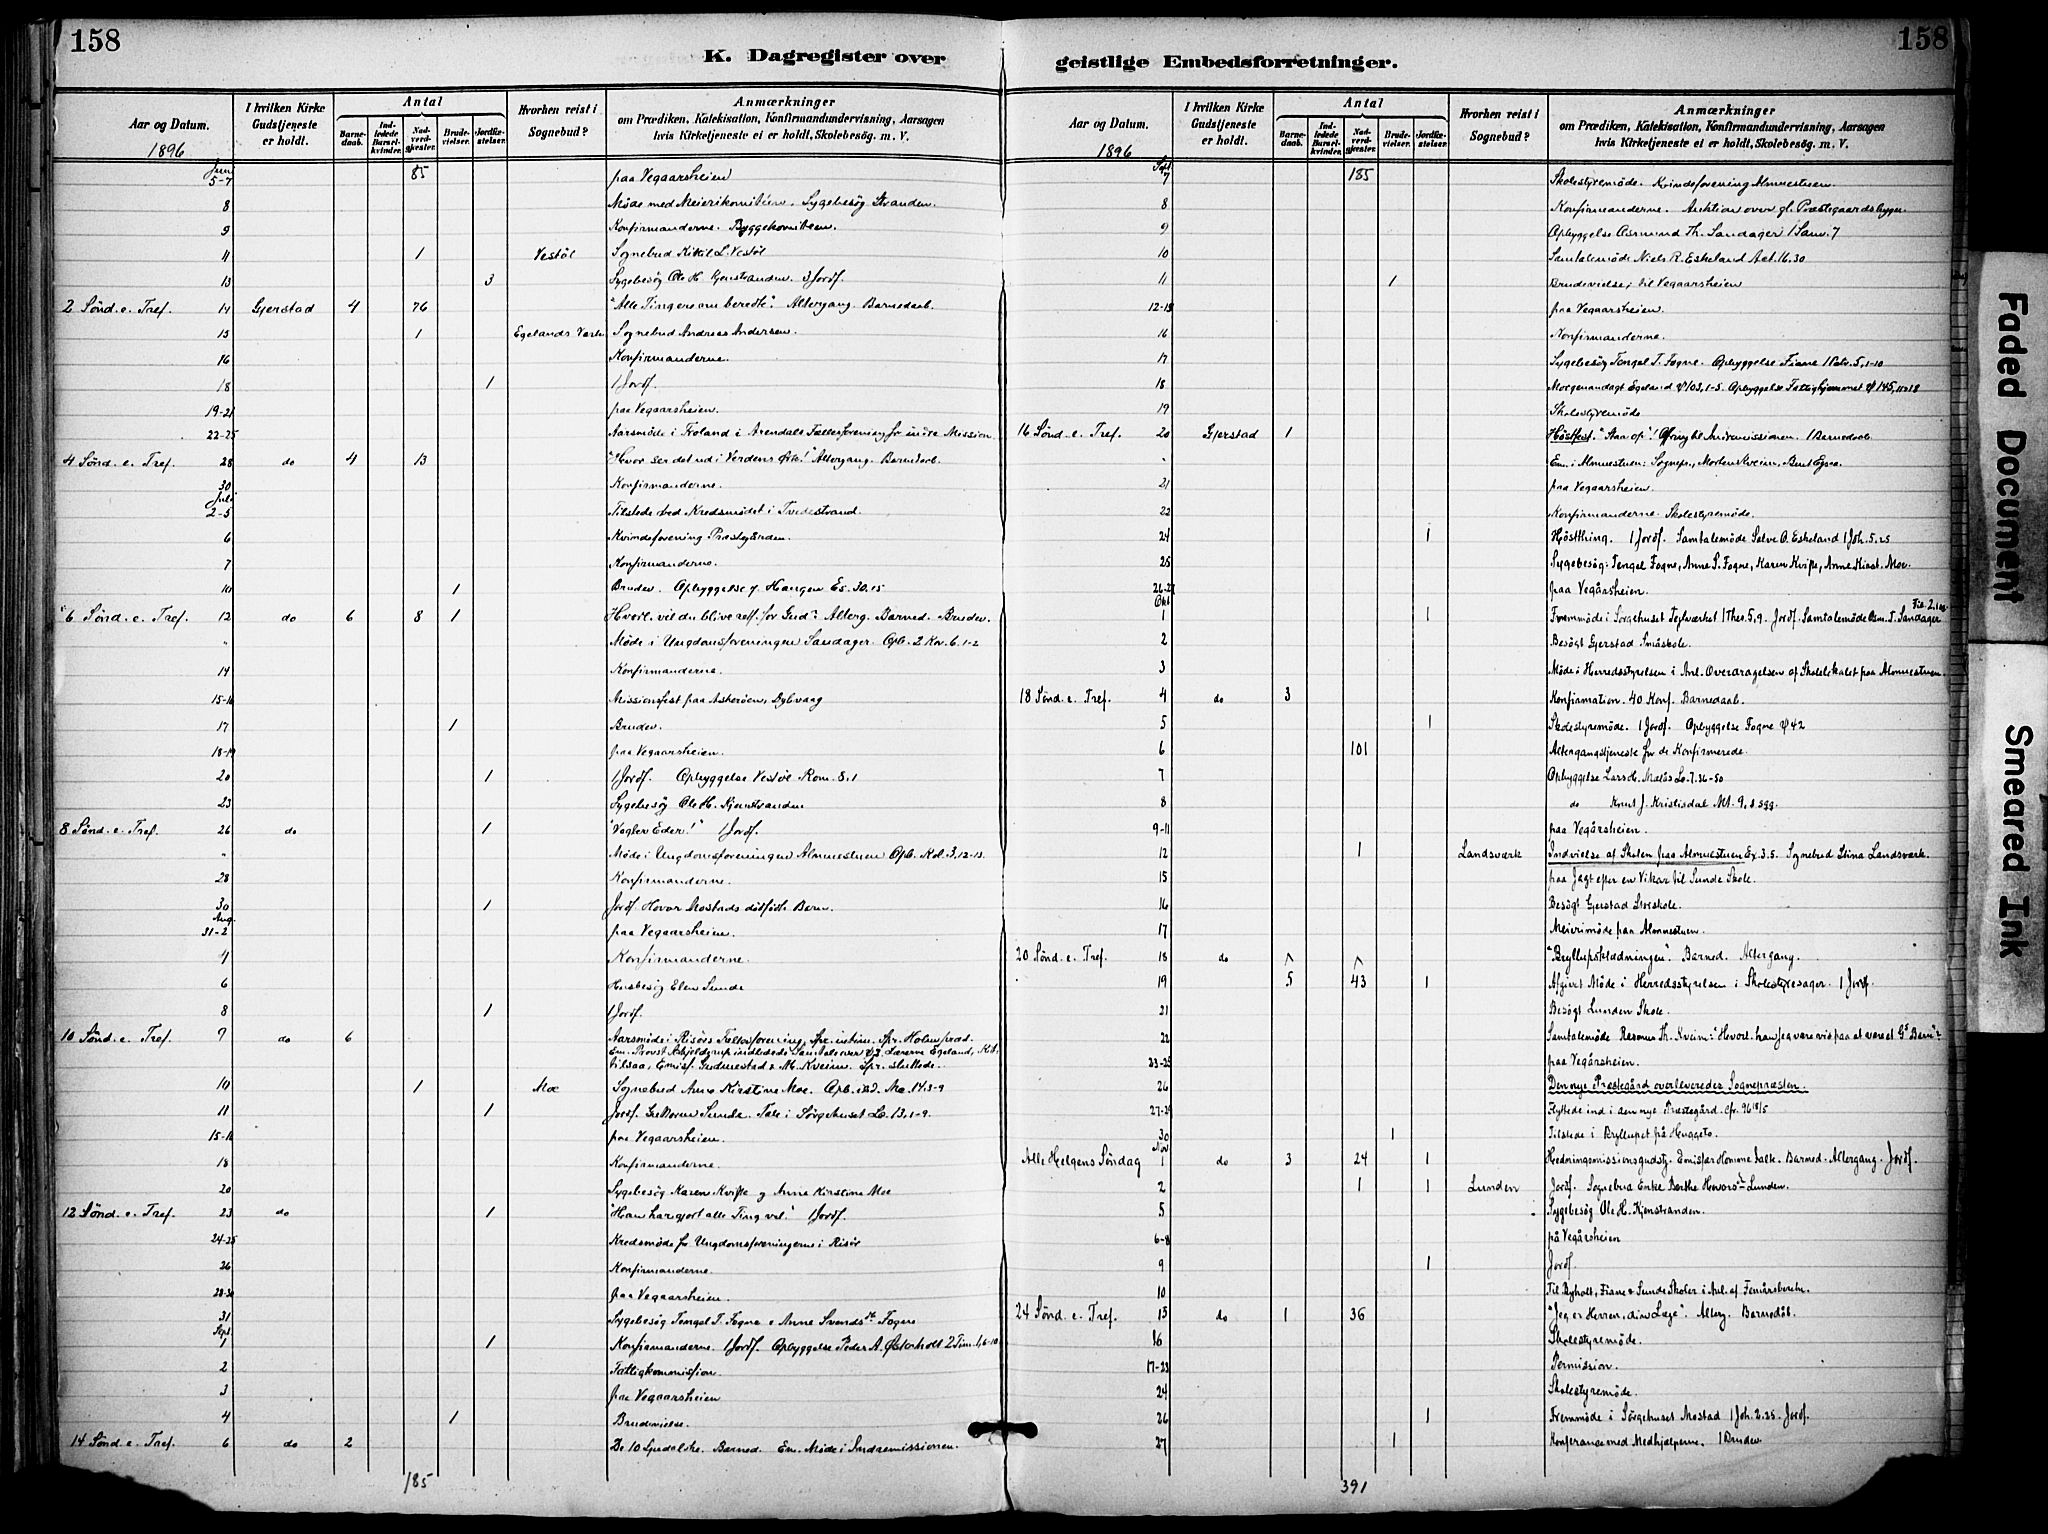 158
K. Dagregister over
Aar og Datum. 1896
I hvilken Kirke Gudstjeneste er holdt.
Antal
Barne-daab. Ind-ledede Barsel-kvinder. Nad-verd-gjæster. Brude-vielser. Jordfæ-stelser.
Hvorhen reist i Sognebud?
Anmærkninger
om Prædiken, Katekisation, Konfirmandundervisning, Aarsagen
hvis Kirketjeneste ei er holdt, Skolebesög. m. V.
Juni 5-7 85 paa Vegaarsheien
8 Møde med Meierikomitéen. Sygebesøg Stranden.
9 Konfirmanderne. Byggekomiteen.
11 1 Vestöl Sognebud Kittil L. Vestöl
13 3 Sygebesög Ole H. Kjenstranden. 3 Jordf.
2 Sönd. e. Tref. 14 Gjerstad 4 76 "Alle Ting ere om beredte". Altergang. Barnedaab.
15 1 Egelands Værk Sognebud Andreas Andersen.
16 Konfirmanderne.
18 1 1 Jordf.
19-21 paa Vegaarsheien.
22-25 Aarsmöde i Froland i Arendals Fællesforening for indre Mission
4 Sönd. e. Tref. 28 do 4 13 "Hvor ser det ud i Verdens Örk!" Altergang. Barnedaab.
30 Konfirmanderne.
Juli 2-5 Tilstede ved Kredsmödet i Tvedestrand.
6 Kvindeforening Præstegården.
7 Konfirmanderne.
10 1 Brudev. Opbyggelse Haugen Es. 30.15
6 Sönd. e. Tref. 12 do 6 8 1 Hvorl. vil du blive retf. for Gud? Alterg. Barned. Brudev.
" Möde i Ungdomsforeningen Sandager. Opb. 2 Kor. 6.1-2
14 Konfirmanderne.
15-16 Missionsfest paa Askeröen, Dybvaag
17 1 Brudev.
18-19 paa Vegaarsheien.
20 1 1 Jordf. Opbyggelse Vestöl Rom. 8.1
23 Sygebesög Ole H. Kjenstranden
8 Sönd. e. Tref. 26 do 1 "Vogter Eder!" 1 Jordf.
" Möde i Ungdomsforeningen Almuestuen Opb. Kol. 3.12-13.
28 Konfirmanderne.
30 1 Jordf. Hovar Mostads dödfödte Barn.
Aug. 31-2 paa Vegaarsheien.
4 Konfirmanderne.
6 Husbesög Elen Sunde
8 1 1 Jordf.
10 Sönd. e. Tref. 9 do 6 Aarsmöde i Risörs Fællesforening, Spr. Holm præd.
Em. Provst indledede Samtale over Lærerne Egeland,
Emiss. Gudmestad & M. Kveim. Spr. sluttede.
10 1 Moe Sognebud Anne Kirstine Moe. Opb. Ma. 14.3-9
11 1 Jordf. Sunde. Tale i Sörgehuset Lc. 13.1-9.
15-16 paa Vegaarsheien.
18 Konfirmanderne.
20 Sygebesög Karen Kvifte og Anne Kirstine Moe
12 Sönd. e. Tref. 23 do 1 "Han har gjort alle Ting vel." 1 Jordf.
24-25 Kredsmöde for Ungdomsforeningerne i Risör
26 Konfirmanderne.
28-30 paa Vegaarsheien.
31 Sygebesög Tengel T. Fogne & Anne Svends dt. Fogne
Sept. 1 1 Konfirmanderne. 1 Jordf. Opbyggelse Peder A. Österholt 2 Tim. 1,6-10
2 Fattigkommission.
3 paa Vegaarsheien
4 1 Brudevielse.
14 Sönd. e. Tref. 6 do 2 De 10 Spedalske. Barned. Em. Möde i Indremissionen.
185
158
geistlige Embedsforretninger.
Aar og Datum. 1896
I hvilken Kirke Gudstjeneste er holdt.
Antal
Barne-daab. Ind-ledede Barsel-kvinder. Nad-verd-gjæster. Brude-vielser. Jordfæ-stelser.
Hvorhen reist i Sognebud?
Anmærkninger
om Prædiken, Katekisation, Konfirmandundervisning, Aarsagen
hvis Kirketjeneste ei er holdt, Skolebesög. m. V.
Sept 7 185 Skolestyremöde. Kvindeforening Almuestuen.
8 Konfirmanderne. Auktion over gl. Præstegaardsbygn.
9 Opbyggelse Asmund Th. Sandager 1 Sam. 7
10 Samtalemöde Niels R. Eskeland Act. 16.30
11 1 Brudevielse; til Vegaarsheien
12-13 paa Vegaarsheien.
16 Konfirmanderne.
17 Sygebesög Tengel T. Fogne. Opbyggelse Fiane 1 Petr. 5,1-10
18 Morgenandagt Egeland ψ 103,1-5. Opbyggelse Fattighjemmet ψ 145, 18
19 Skolestyremöde
16 Sönd. e. Tref. 20 Gjerstad 1 Höstfest. "Staa op"! Indremissionen. 1 Barnedaab.
" Em. i Almuestuen: Sognepr., Morten Kveim, Bent Egra.
21 paa Vegaarsheien.
22 Konfirmanderne. Skolestyremöde.
24 1 Höstthing. 1 Jordf. Samtalemöde Salve O. Eskeland 1 Joh. 5.25
25 Sygebesög: Tengel Fogne, Anne S. Fogne, Karen Kvifte, Anne Kirst. Moe.
26-27 paa Vegårsheien.
Okt 1 1 Fremmöde i Sorgehuset Teglværket 1 Thes. 5,9. Jordf. Samtalemöde Osm. T. Sandager
2 Besögt Gjerstad Småskole.
3 Möde i Herredsstyrelsen i Anl. Overdragelsen af Skolelokalet paa Almuestuen.
18 Sönd. e. Tref. 4 do 3 Konfirmation. 40 Konf. Barnedaab.
5 1 Skolestyremöde. 1 Jordf. Opbyggelse Fogne ψ 42
6 101 Altergangstjeneste for de Konfirmerede.
7 Opbyggelse Lars Mælås Lc. 7.36-50
8 do Knut J. Kristisdal Mt. 9, 8 sqq.
9-11 paa Vegårsheien.
12 1 Landsværk Indvielse af Skolen paa Almuestuen Ex. 3.5. Sognebud Stina Landsværk.
15 paa Jagt efter en Vikar til Sunde Skole.
16 Besögt Gjerstad Storskole.
17 Meierimöde paa Almuestuen.
20 Sönd. e. Tref. 18 do "Bryllupsklædningen". Barned. Altergang.
19 5 43 1 Afgivet Möde i Herredsstyrelsen i Skolestyresager. 1 Jordf.
21 Besögt Lunden Skole.
22 Samtalemöde Rasmus Th. Kveim: "Hvorl. kan jeg være vis paa at være et Gs Barn"?
23-25 paa Vegårsheien.
26 Den nye Præstegård overleveredes Sognepræsten.
27-29 Flyttede ind i den nye Præstegård. cfr. 96 18/5
30 1 Tilstede i Bryllupet på Huggeto.
Alle Helgens Söndag Nov 1 do 3 24 1 Hedningemissionsgudstj. Emissær Homme talte. Barned. Altergang. Jordf.
2 1 1 Lunden Jordf. Sognebud Enke Berthe Hovors dt Lunden.
5 Sygebesög Ole H. Kjenstranden.
6-8 på Vegårsheien
9 1 Jordf.
10 Til Byholt, Fiane & Sunde Skoler i Anl. af Femårsberetn.
24 Sönd. e. Tref. 15 do 1 36 "Jeg er Herren, din Læge". Alterg. Barnedåb.
16 Skolestyremöde.
17-23 Permission.
24 Skolestyremöde.
26 1 Fremmöde i Sörgehuset Mostad 1 Joh. 2.25. Jordf.
27 1 Konferance med Medhjælperne. 1 Brudev.
391
Faded Document
Smeared Ink